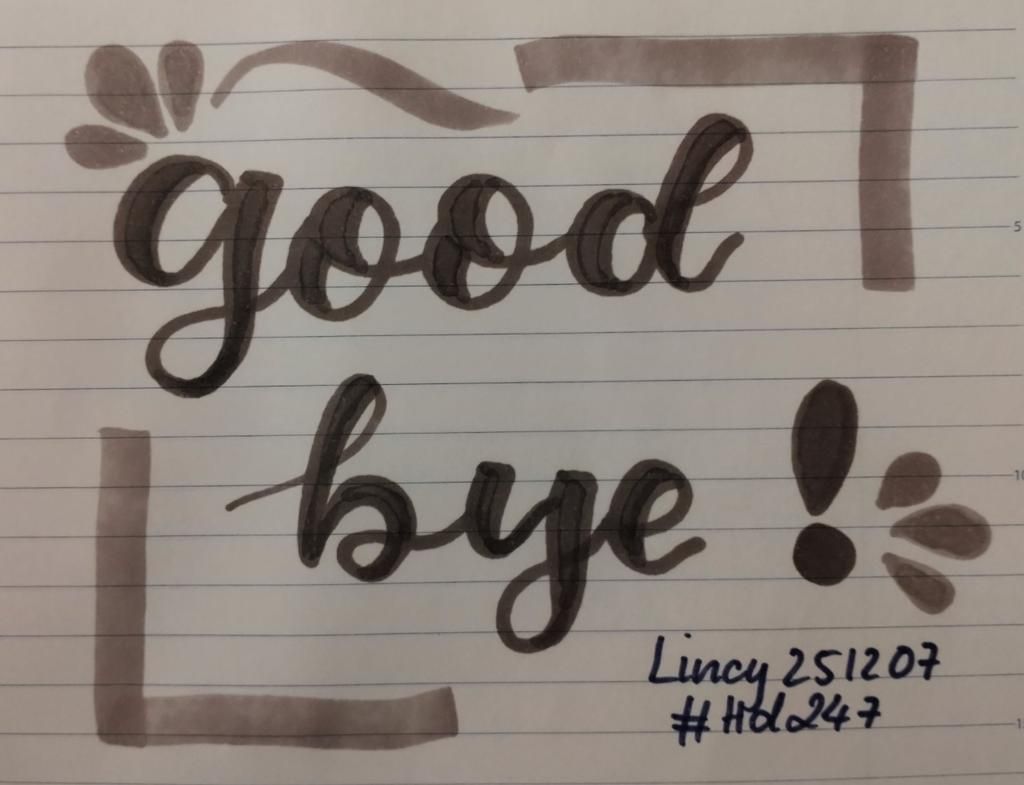 good
bye!
Lincy 251207
#Hdl247
5
10
1